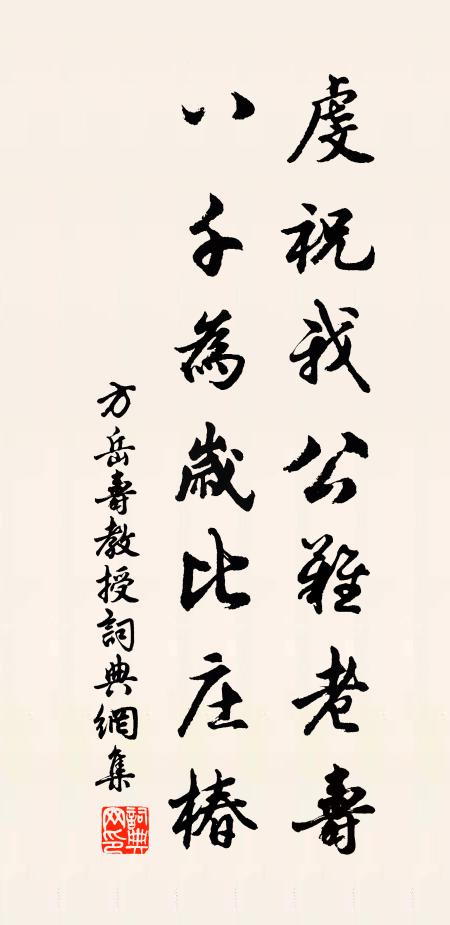 虔祝我公難老壽
八千為歲比庄椿
方岳壽教授詞典網集
詞典网印